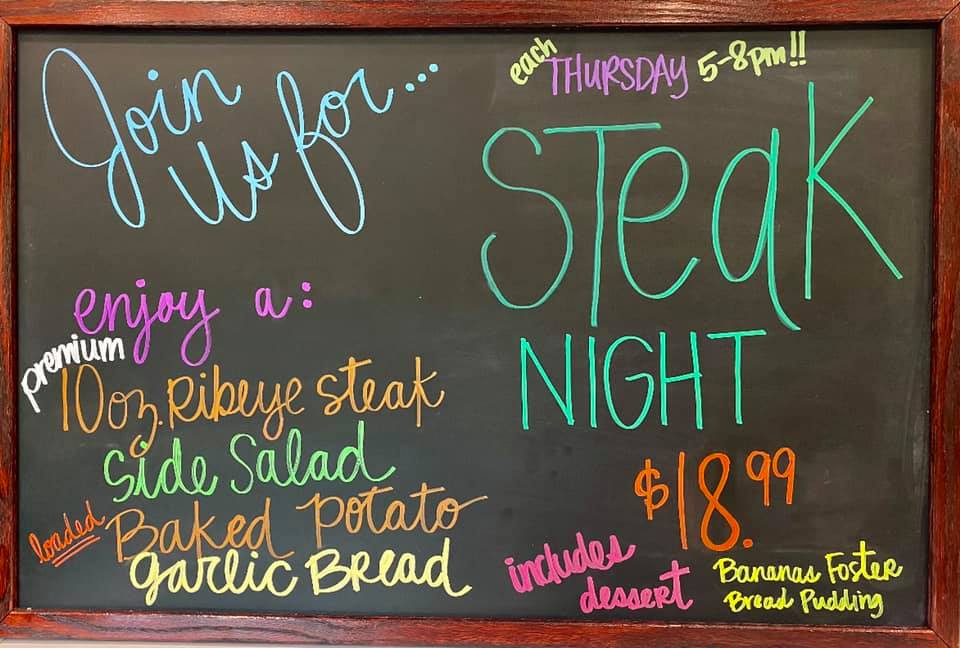 Join
Us for...
each THURSDAY 5-8pm!!
STeaK
NIGHT
enjoy a:
premium
10oz. Ribeye steak
side Salad
loaded Baked Potato
garlic Bread
$18.99
includes
dessert
Bananas Foster
Bread Pudding